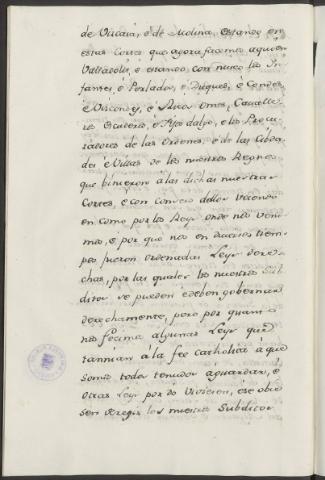 de Viscaia, è de Molina, estando en
estas Cortes que agora facemos aqui en
Valladolid, è estando con nusco los In-
fantes, è Perlados, è Duques, è Condes,
è Viscondes, è Ricos Omes, Cavalle-
ros Escuderos, è Fijosdalgo, è los Procu-
radores de las Ordenes, è de las Cibda-
des è Villas de los nuestros Regnos
que binieron à las dichas nuestras
Cortes, è con consejo dellos veiendo
en como por los Reys onde nos veni-
mos, è por que nos en diversos tiem-
pos fueron ordenadas Leys dere-
chas, por las quales los nuestros Sub-
ditos se pueden è deben gobernar
derechamente, pero por quanto
nos fecimos algunas Leys que
tannian à la fee catholica à que
somos todos tenudos à guardar, è
otras Leys por do viviesen, è se obie-
sen à regir los nuestros Subditos